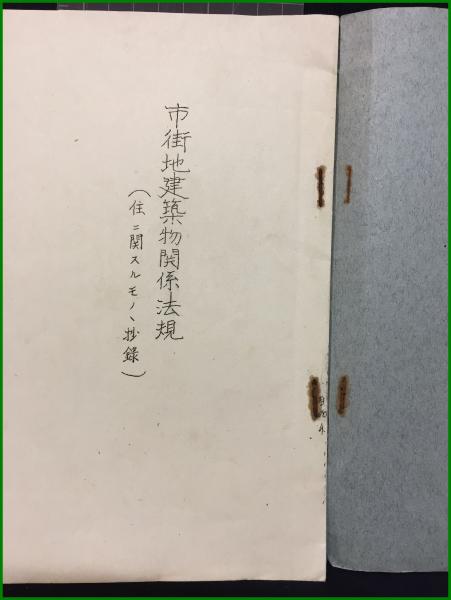 市街地建築物関係法規
(住ニ関スルモノヽ抄録)